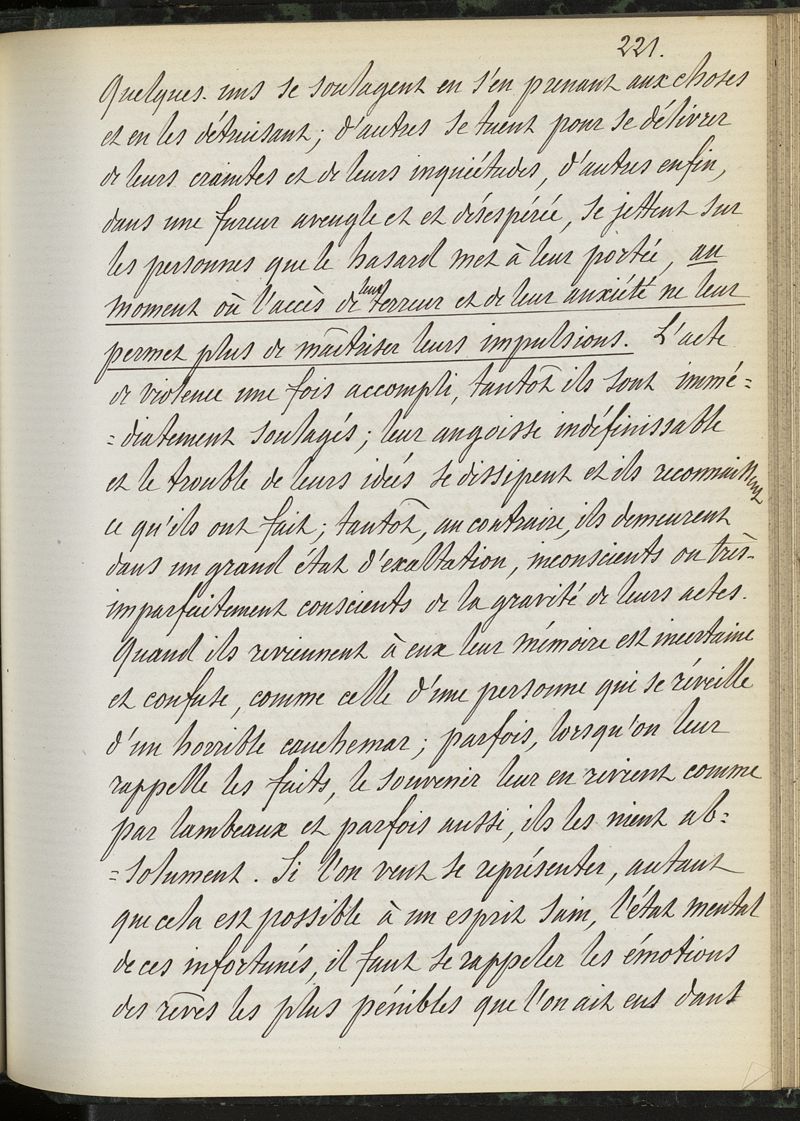 221.
Quelques-uns se soulagent en s'en prenant aux choses
et en les détruisant; d'autres se tuent pour se délivrer
de leurs craintes et de leurs inquiétudes, d'autres enfin,
dans une fureur aveugle et et désespérée, se jettent sur
les personnes que le hasard met à leur portée, au
moment où l'accès de leur terreur et de leur anxiété ne leur
permet plus de maîtriser leurs impulsions. L'acte
de violence une fois accompli, tantôt ils sont immé=
=diatement soulagés; leur angoisse indéfinissable
et le trouble de leurs idées se dissipent et ils reconnaissent
ce qu'ils ont fait; tantôt, au contraire, ils demeurent
dans un grand état d'exaltation, inconscients ou très-
imparfaitement conscients de la gravité de leurs actes.
Quand ils reviennent à eux leur mémoire est incertaine
et confuse, comme celle d'une personne qui se réveille
d'un horrible cauchemar; parfois, lorsqu'on leur
rappelle les faits, le souvenir leur en revient comme
par lambeaux et parfois aussi, ils les nient ab=
=solument. Si l'on veut se représenter, autant
que cela est possible à un esprit sain, l'état mental
de ces infortunés, il faut se rappeler les émotions
des rêves les plus pénibles que l'on ait eus dans